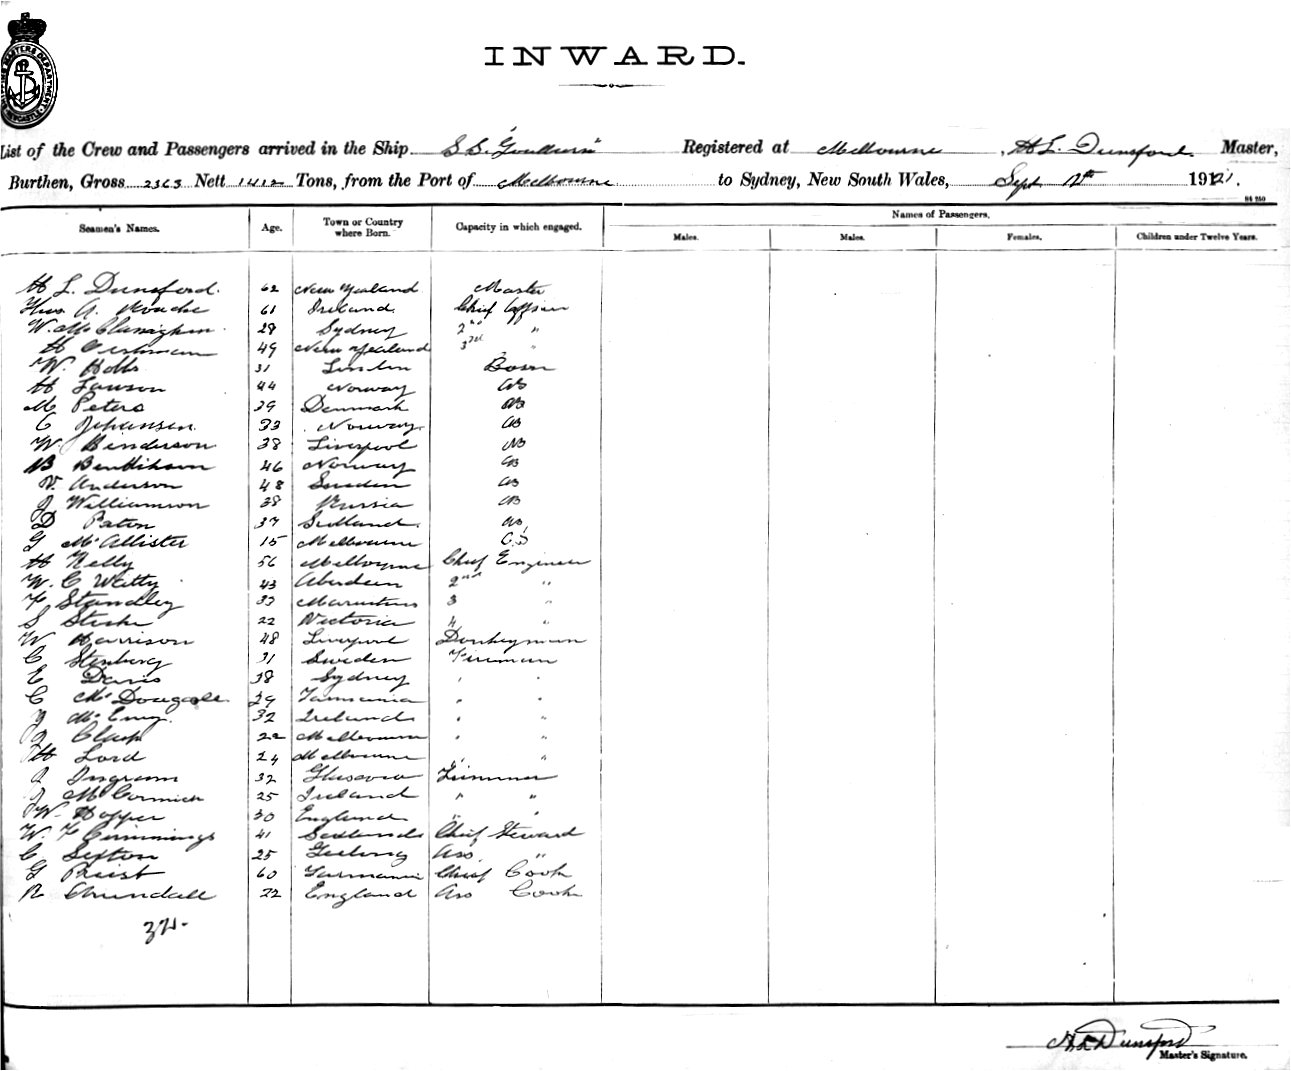 INWARD.
List of the Crew and Passengers arrived in the Ship S.S. "Goulburn" Registered at Melbourne, H L Dunsford Master,
Burthen, Gross 2363 Nett 1412 Tons, from the Port of Melbourne to Sydney, New South Wales, Sept 12th 1921.
Names of Passengers.
Seamen's Names. Age. Town or Country where Born. Capacity in which engaged. Males. Males. Females. Children under Twelve Years.
H L. Dunsford. 62 New Zealand Master
A. Roache 61 Ireland. Chief Officer
W. 28 Sydney 2nd "
H 49 New Zealand 3rd "
W. Hobbs 31 Bosn
H Lawson 44 Norway AB
M Peters 39 Denmark AB
C Johansen 33 Norway. AB
W. Henderson 38 Liverpool AB
B 46 Norway AB
V. Anderson 48 Sweden AB
J Williamson 38 Russia AB
D Paton 37 AB
G McAllister 15 Melbourne O.S
H Kelly 56 Melbourne Chief Engineer
W. C Watty 43 Aberdeen 2nd "
F Standley 33 3 "
S 22 Victoria 4 "
W Harrison 48 Liverpool Donkeyman
C Stenberg 31 Sweden Fireman
E Davis 38 Sydney " "
C McDougall 39 Tasmania " "
32 Ireland " "
22 Melbourne " "
H Lord 24 Melbourne " "
J Ingram 32 Glasgow Trimmer
J McCormick 25 Ireland " "
W. Hopper 30 England " "
W. F Cummings 41 Scotland Chief Steward
C Sexton 25 Geelong Ass. "
G Priest 60 Tasmania Chief Cook
R Arundall 22 England Ass Cook
32.
H L Dunsford
Master's Signature.